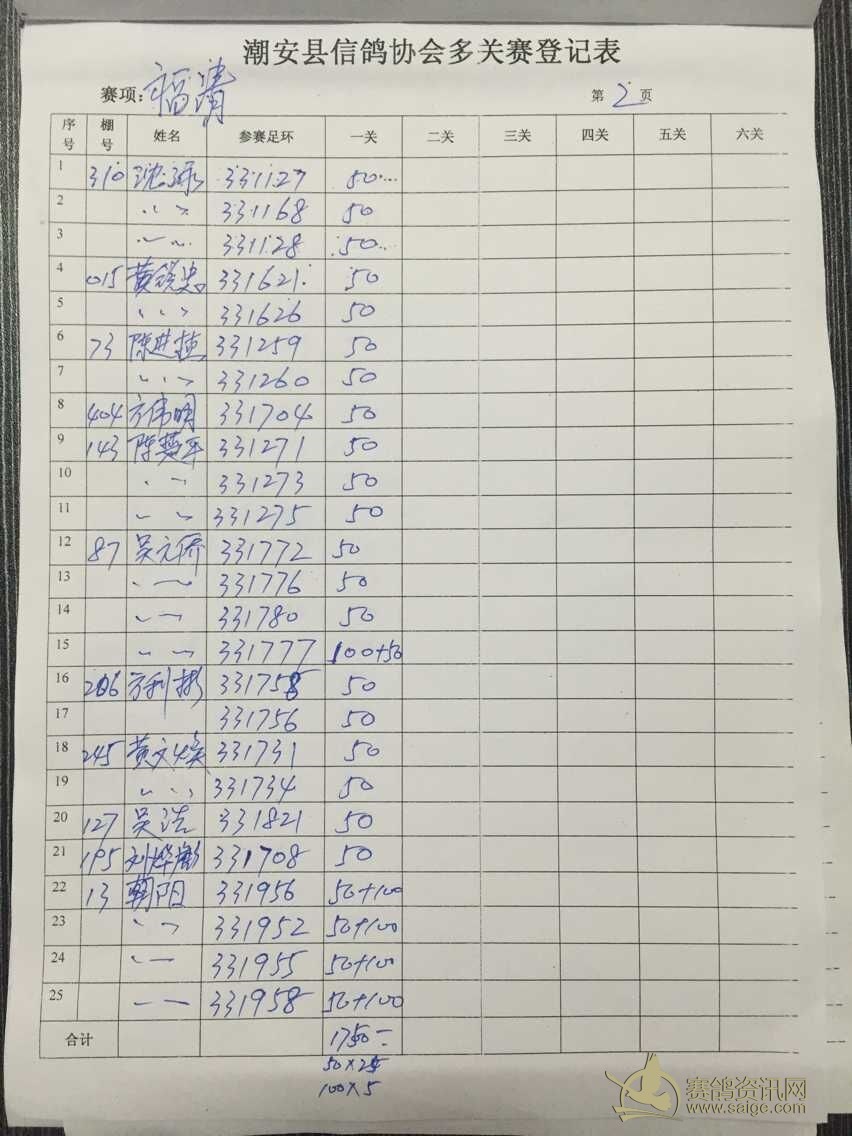 潮安县信鸽协会多关赛登记表
赛项：福清 第 2 页
序号 棚号 姓名 参赛足环 一关 二关 三关 四关 五关 六关
1 310 331127 50
2 〃 331168 50
3 〃 331128 50
4 015 黄锐忠 331621 50
5 〃 331626 50
6 73 陈进 331259 50
7 〃 331260 50
8 404 方伟明 331704 50
9 143 陈燕平 331271 50
10 〃 331273 50
11 〃 331275 50
12 87 吴元侨 331772 50
13 〃 331776 50
14 〃 331780 50
15 〃 331777 100+50
16 206 方利彬 331758 50
17 331756 50
18 245 黄文焕 331731 50
19 〃 331734 50
20 127 吴浩 331821 50
21 195 刘烨彬 331708 50
22 13 朝阳 331956 50+100
23 〃 331952 50+100
24 〃 331955 50+100
25 〃 331958 50+100
合计 1750-
50×25
100×5
赛鸽资讯网
www.saige.com